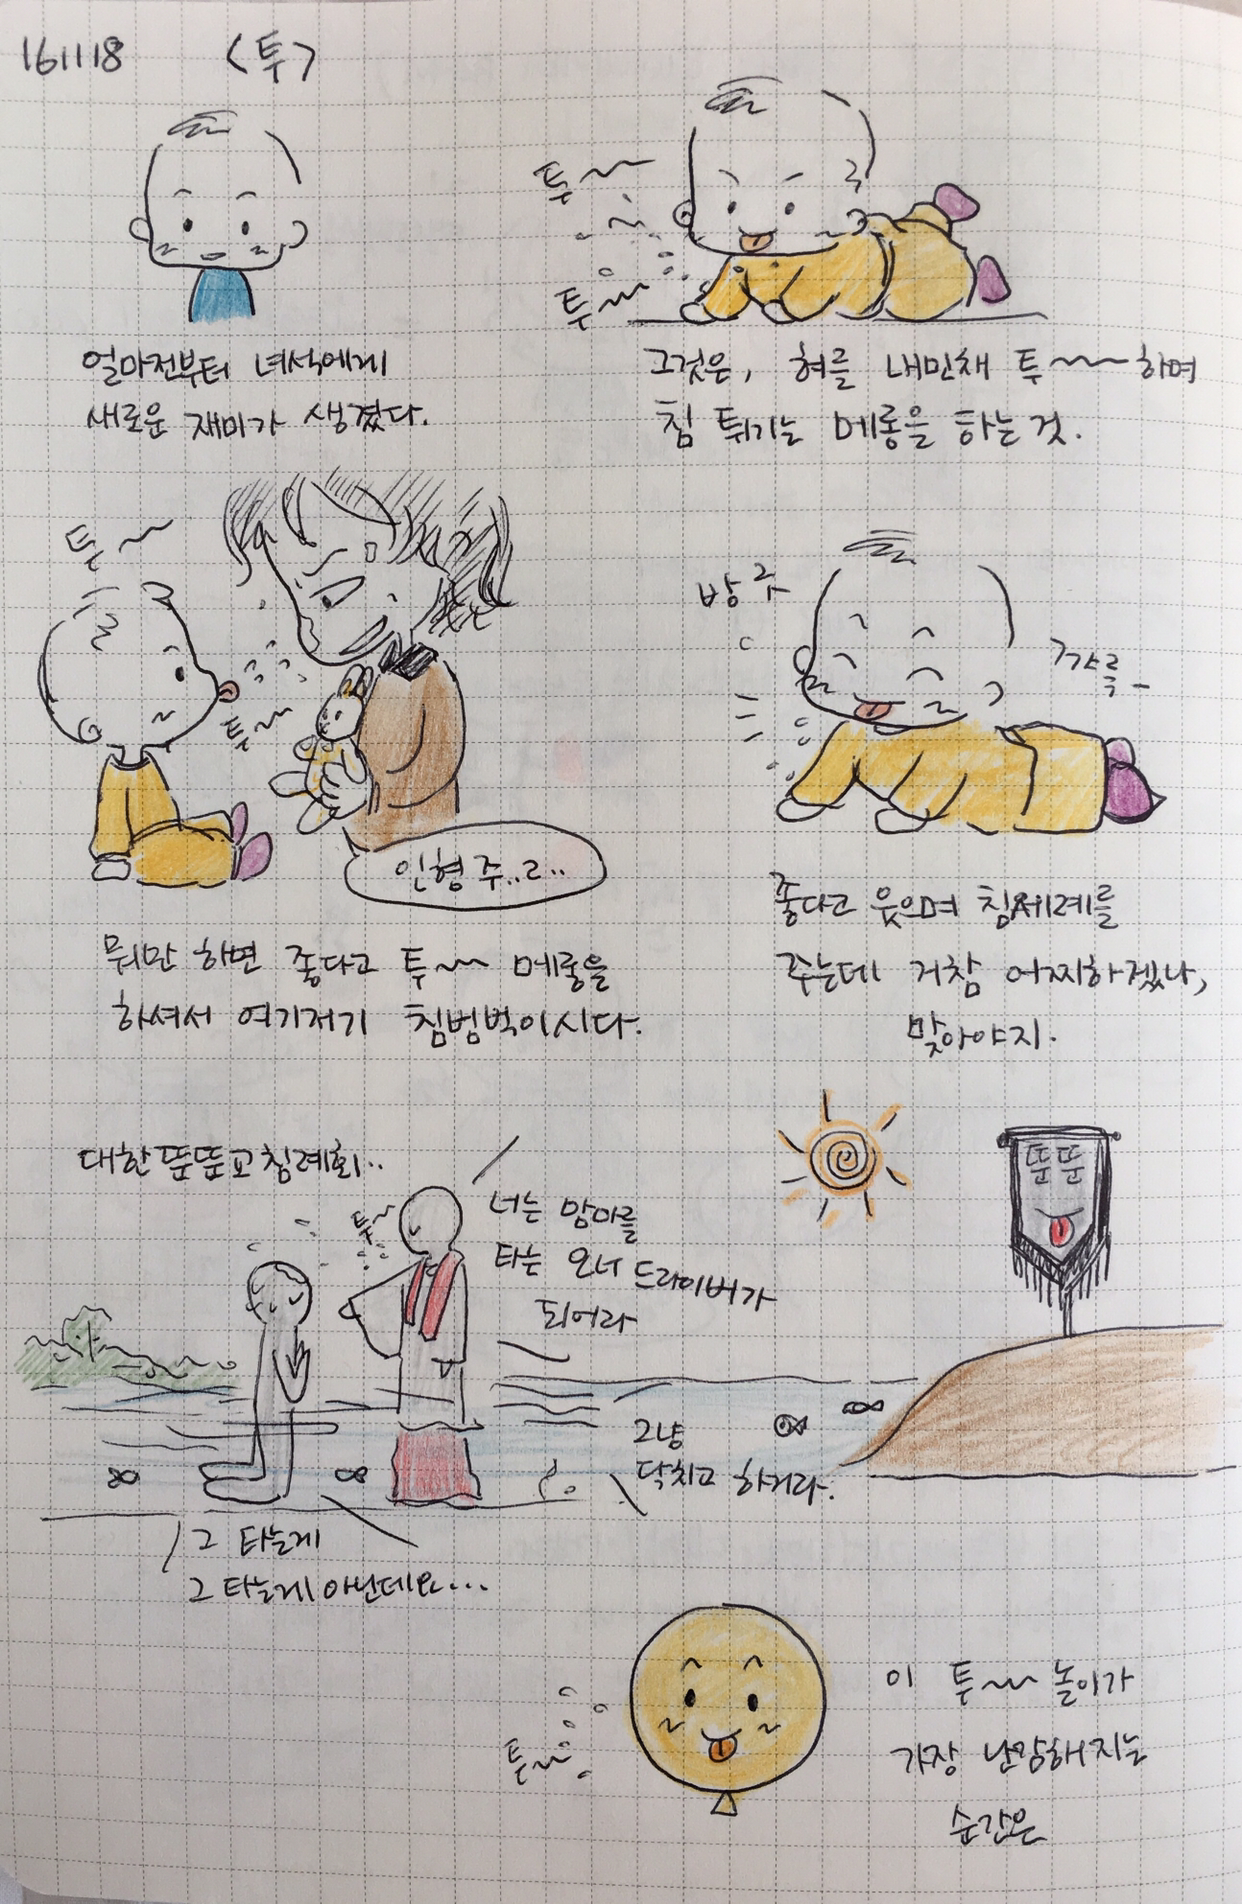 161118 <투>
투~~
투~~
얼마전부터 녀석에게
새로운 재미가 생겼다.
그것은, 혀를 내민채 투~~~하며
침 튀기는 메롱을 하는 것.
투~
투~~
인형 주..ㄹ..
뭐만 하면 좋다고 투~~ 메롱을
하셔서 여기저기 침범벅이시다.
방긋
꺄륵-
좋다고 웃으며 침세례를
주는데 거참 어찌하겠나,
맞아야지.
대한뚠뚠교침례회..
투~
너는 맘마를
타는 오너 드라이버가
되어라
뚠뚠
그냥
닥치고 하거라.
그 타는게
그 타는게 아닌데요...
투~~
이 투~~ 놀이가
가장 난감해지는
순간은